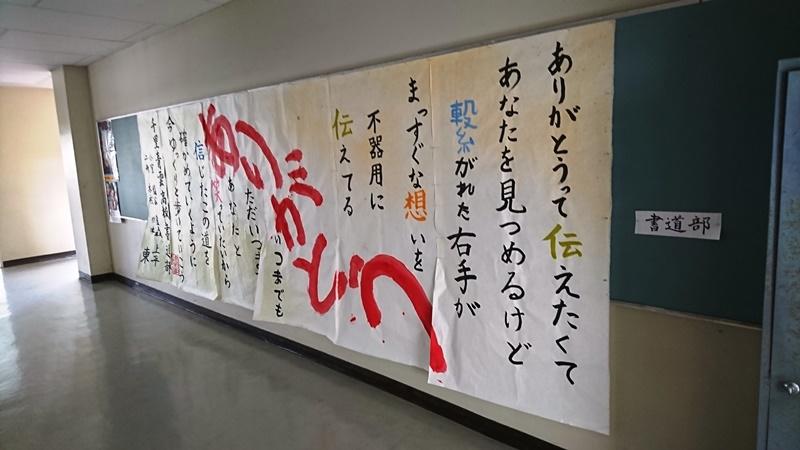 ありがとうって伝えたくて
あなたを見つめるけど
繋がれた右手が
まっすぐな想いを
不器用に
伝えてる
いつまでも
ただいつま
あなたと
笑っていたいから
信じたこの道を
確かめていくように
今ゆっくりと歩いていこう
ありがとう
書道部